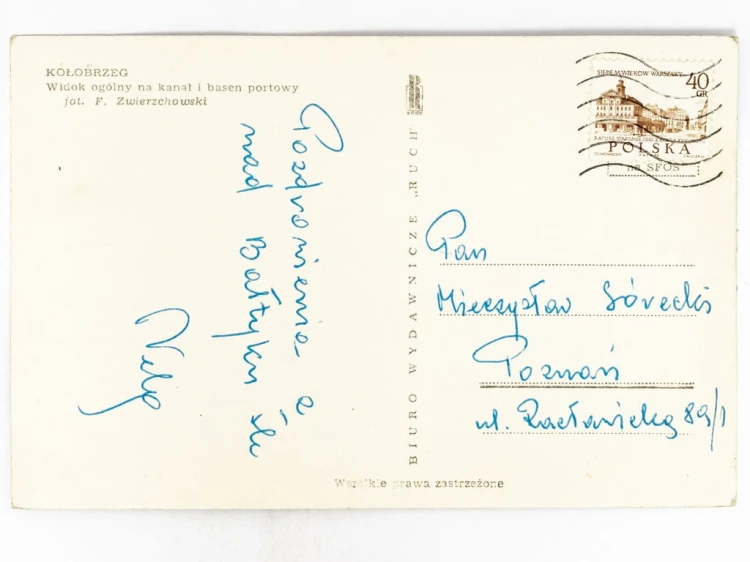 KÓŁOBRZEG
Widok ogólny na kanał i basen portowy
fot. F. Zwierzchowski
Pozdrowienia z
nad Bałtyku śle
BIURO WYDAWNICZE „RUCH"
SIEDEM WIEKÓW WARSZAWY
40
GR
POLSKA
na SFOS
Pan
Mieczysław Górecki
Poznań
ul. Racławicka 89/1
Wszelkie prawa zastrzeżone